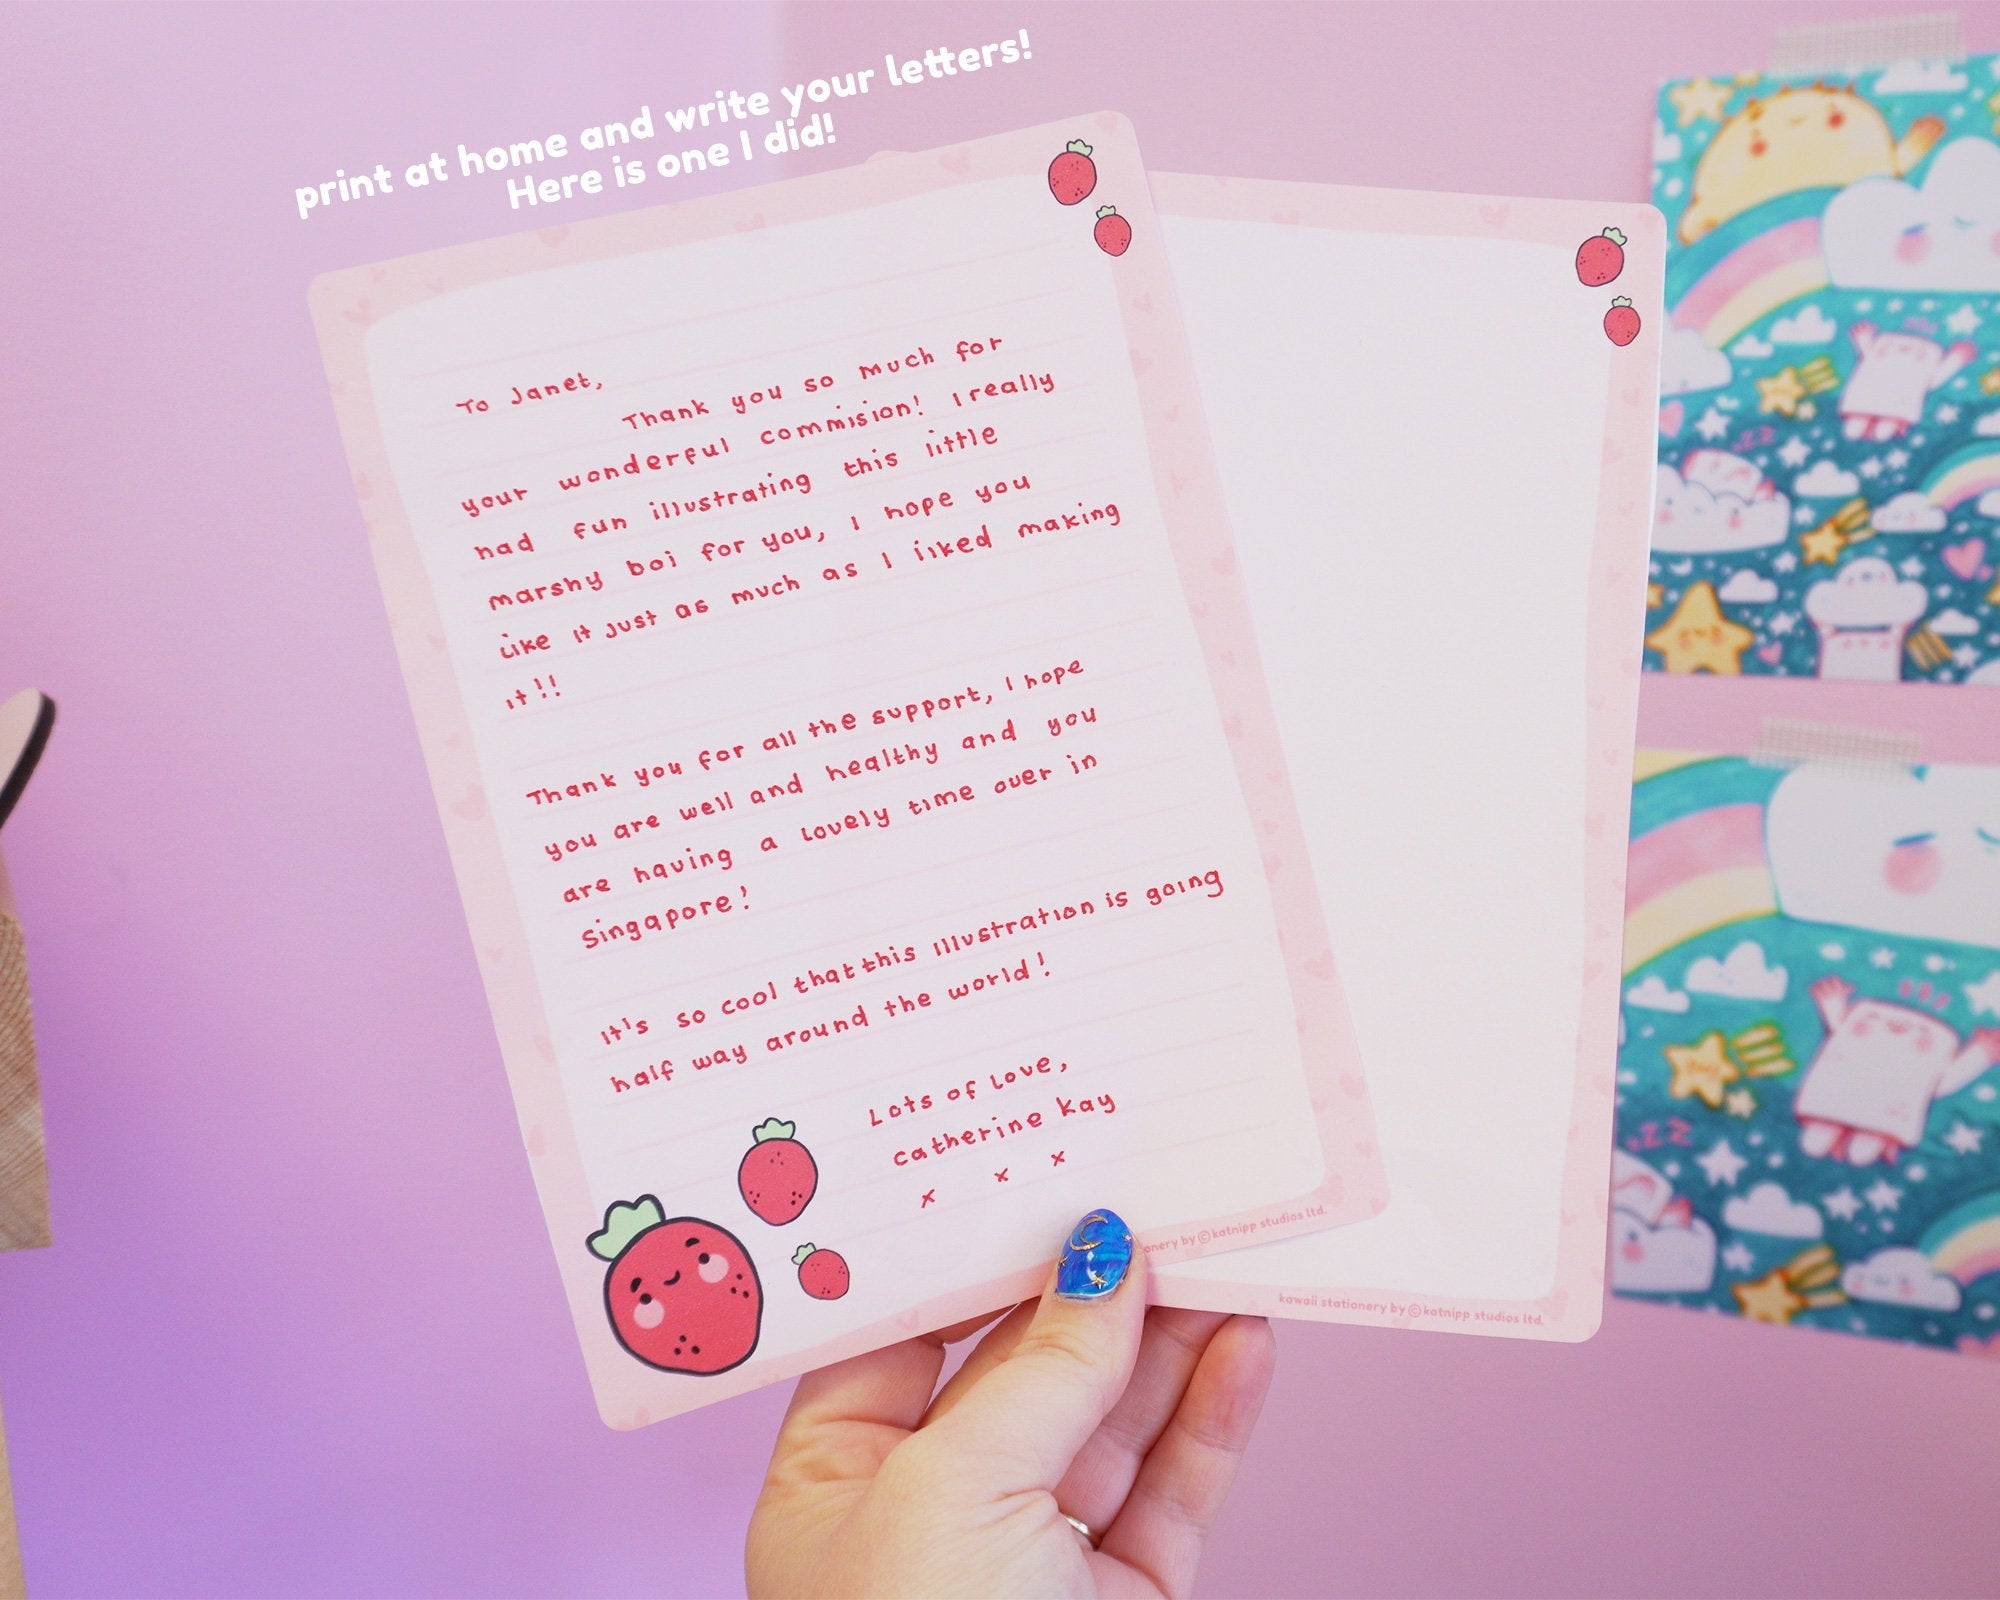 print at home and write your letters!
Here is one I did!
To Janet,
Thank you so much for
your wonderful commision! I really
had fun illustrating this little
marshy boi for you, I hope you
like it just as much as I liked making
it!!
Thank you for all the support, I hope
you are well and healthy and you
are having a lovely time over in
Singapore!
It's so cool that this illustration is going
half way around the world!
Lots of Love,
Catherine Kay
x x x
onery by ©katnipp studios ltd.
kawaii stationery by ©katnipp studios ltd.
zzz
zzz